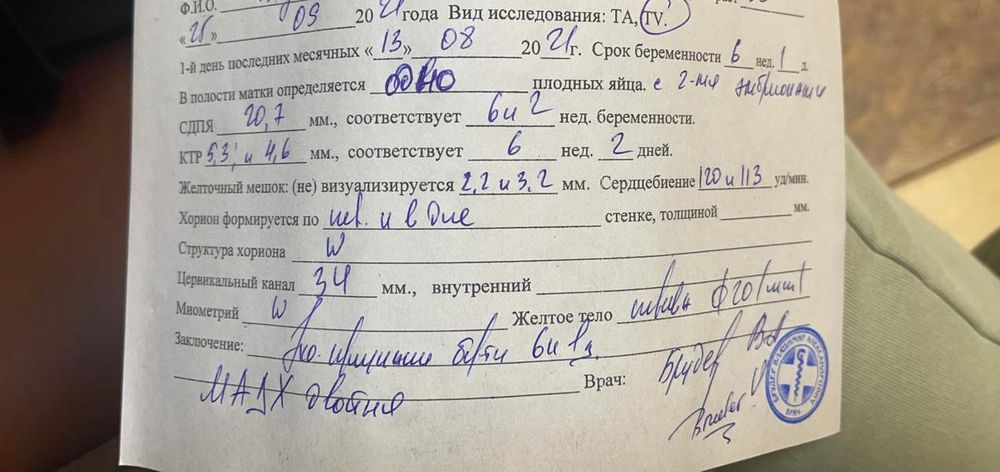 Ф.И.О.
«25» 09 2021 года Вид исследования: ТА, TV.
1-й день последних месячных «13» 08 2021г. Срок беременности 6 нед. 1 д.
В полости матки определяется одно плодных яйца. с 2-мя эмбрионами
СДПЯ 20,7 мм., соответствует 6 и 2 нед. беременности.
КТР 5,3 и 4,6 мм., соответствует 6 нед. 2 дней.
Желточный мешок: (не) визуализируется 2,2 и 3,2 мм. Сердцебиение 120 и 113 уд/мин.
Хорион формируется по пер. и в дне стенке, толщиной мм.
Структура хориона N
Цервикальный канал 34 мм., внутренний
Миометрий N Желтое тело
Заключение: Эхо-признаки 6 и 2
МАДХ двойня Врач: Брудер В.А